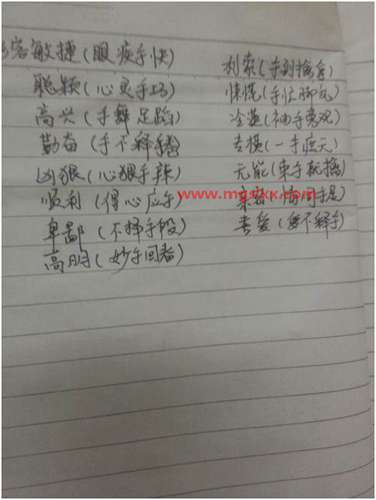 容敏捷(眼疾手快)
聪颖(心灵手巧)
高兴(手舞足蹈)
勤奋(手不释卷)
凶狠(心狠手辣)
顺利(得心应手)
卑鄙(不择手段)
高明(妙手回春)
利索(手到擒来)
(手忙脚乱)
冷漠(袖手旁观)
专横(一手遮天)
无能(束手就擒)
情同手足
喜爱(爱不释手)